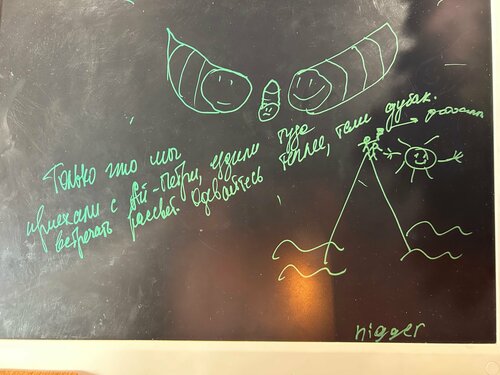 Только что мы
приехали с Ай-Петри, ездили туда
встречать рассвет. Одевайтесь теплее, там дубак.
nigger